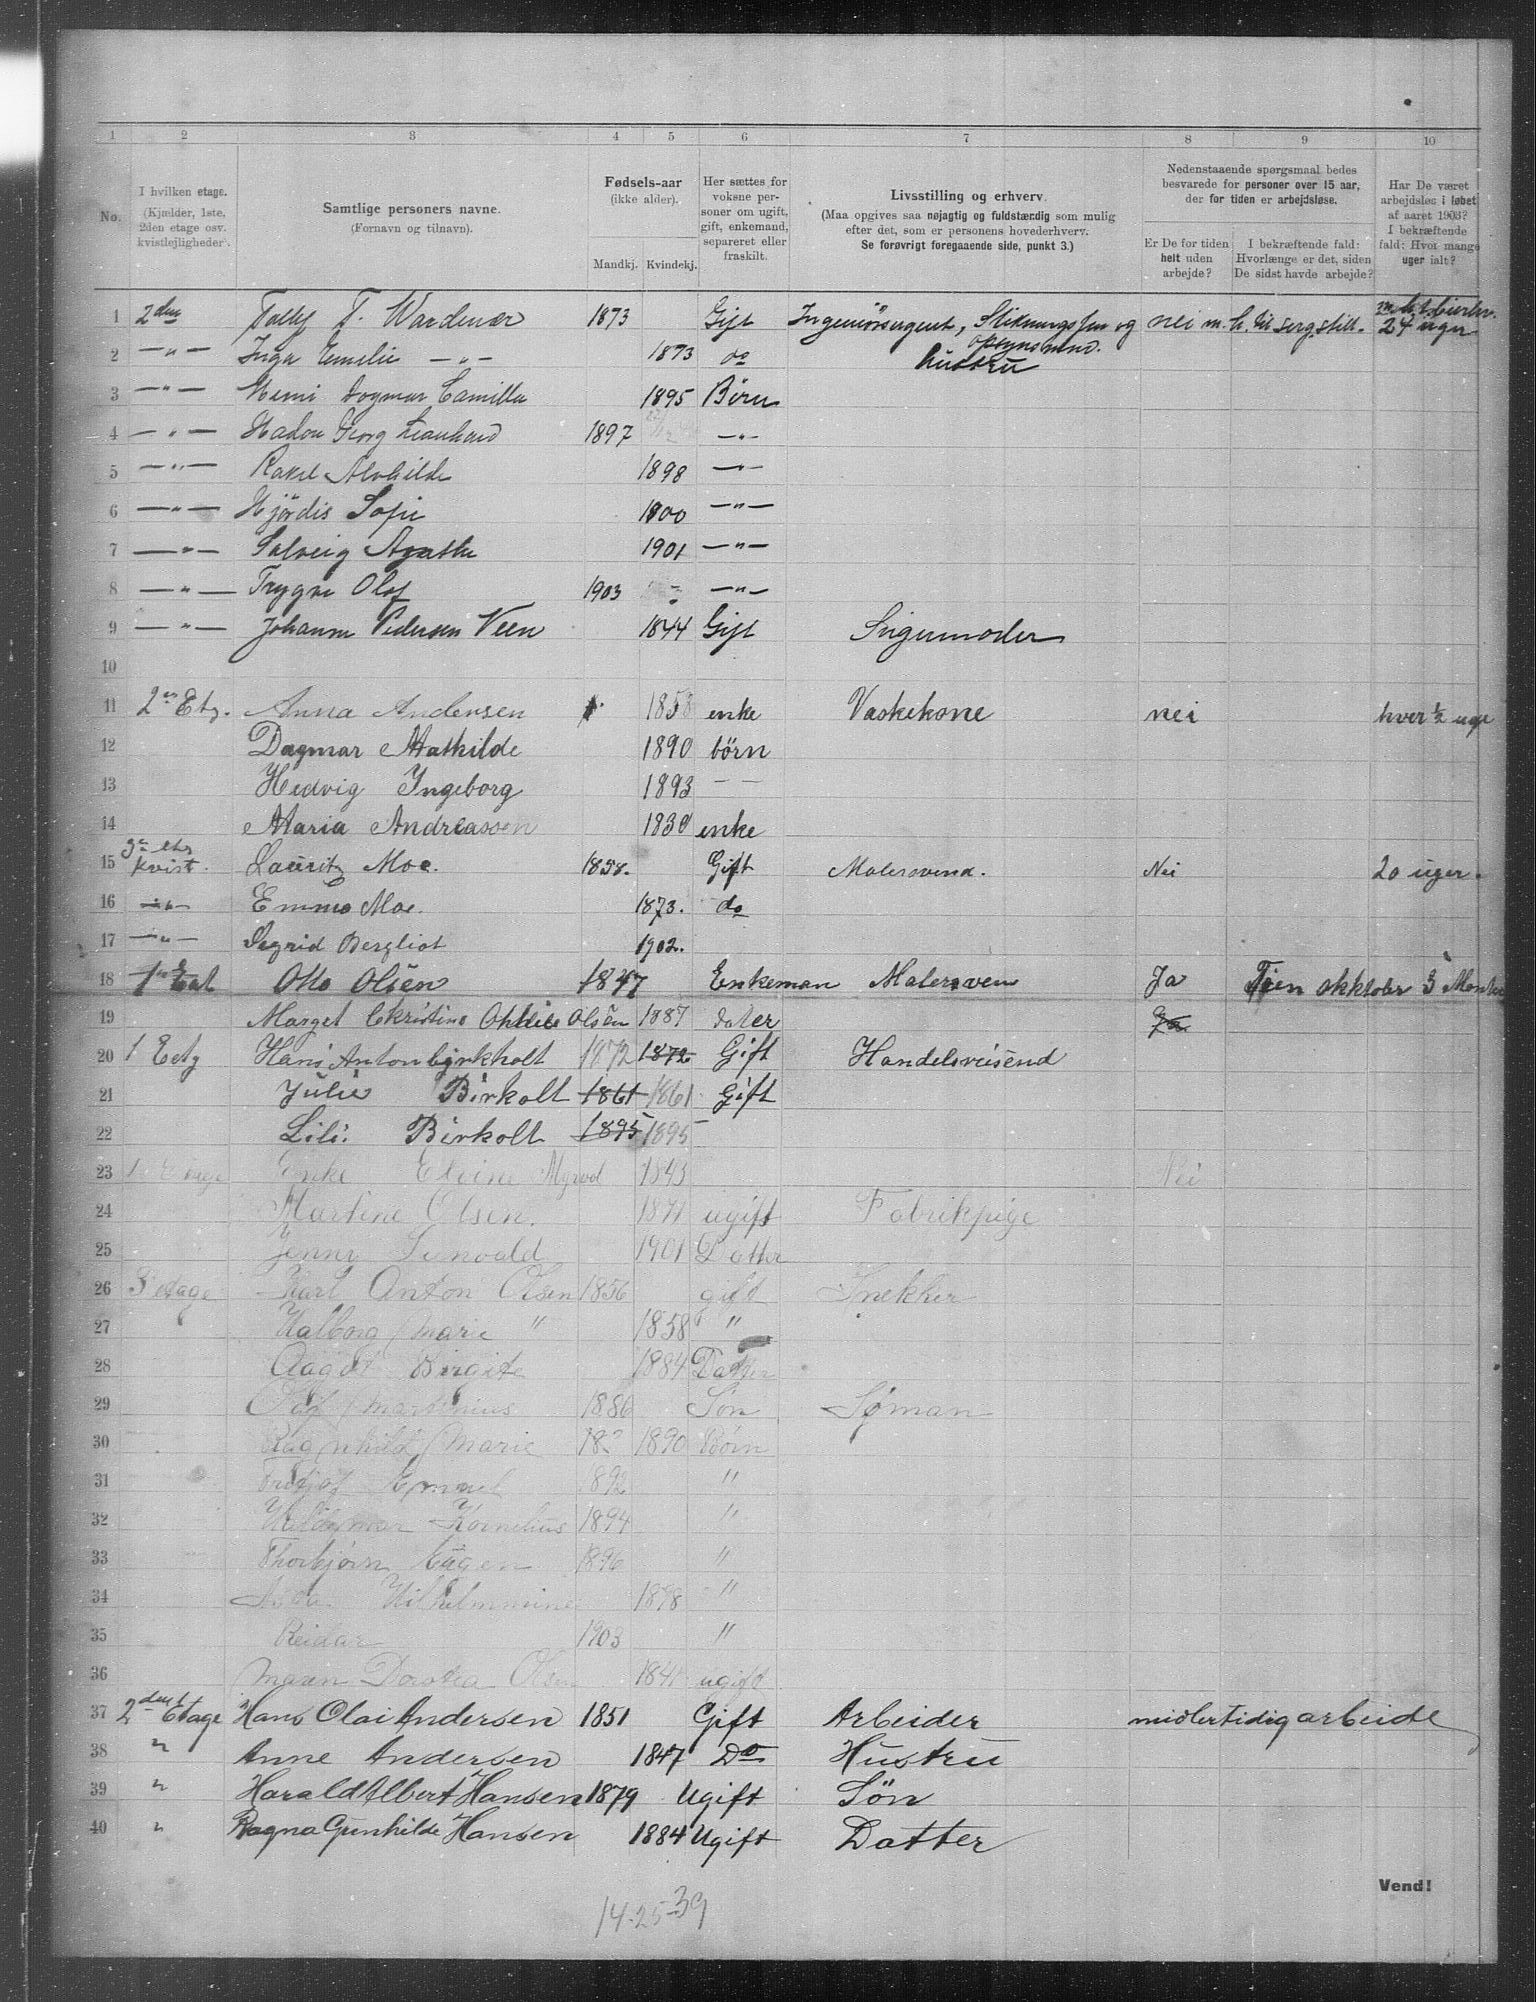 1 2 3 4 5 6 7 8 9 10
No.
I hvilken etage.
(Kjælder, 1ste,
2den etage osv.
kvistlejligheder).
Samtlige personers navne.
(Fornavn og tilnavn).
Fødsels-aar
(ikke alder).
Mandkj. Kvindekj.
Her sættes for
voksne per-
soner om ugift,
gift, enkemand,
separeret eller
fraskilt.
Livsstilling og erhverv.
(Maa opgives saa nøjagtig og fuldstændig som mulig
efter det, som er personens hovederhverv.
Se forøvrigt foregaaende side, punkt 3.)
Nedenstaaende spørgsmaal bedes
besvarede for personer over 15 aar,
der for tiden er arbejdsløse.
Er De for tiden
helt uden
arbejde?
I bekræftende fald:
Hvorlænge er det, siden
De sidst havde arbejde?
Har De været
arbejdsløs i løbet
af aaret 1903?
I bekræftende
fald: Hvor mange
uger ialt?
1 2den T. Wardenær 1873 Gift nei 24 uger
2 —"— Inga Emilie —"— 1873 do hustru
3 —"— Dagmar Camilla 1895 Børn
4 —"— Georg 1897 —"—
5 —"— Rakel Alvhilde 1898 —"—
6 —"— Hjördis Sofie 1900 —"—
7 —"— Solveig Agathe 1901 —"—
8 —"— Trygve Olaf 1903 —"—
9 —"— Johanne Pedersen Veen 1844 Gift Svigermoder
10
11 2en Etg. Anna Andersen 1858 enke Vaskekone nei hver ½ uge
12 Dagmar Mathilde 1890 börn
13 Hedvig Ingeborg 1893 — —
14 Maria Andreassen 1830 enke
15 3die etg kvist. Lauritz Moe. 1858. Gift Malersvend. Nei 20 uger.
16 —"— Emma Moe. 1873. do
17 —"— Sigrid Bergliot 1902.
18 1ste Etat Otto Olsen 1847 Enkeman Malersven Ja okktober 3
19 Marget Christine Othilie Olsen 1887 dater Ja
20 1 Eetg Hans Anton birkholt 1872 1872 Gift Handelsreisend
21 Julie Birkolt 1861 1861 Gift
22 Lili Birkolt 1895 1895
23 1 Etage Enke Elvine Myrvol 1843 Nei
24 Martine Olsen. 1871 ugift Fabrikpige
25 Jenny 1901 Datter
26 3 etage Karl Anton Olsen 1856 gift Snekker
27 Valborg Marie " 1858 "
28 Aagot Birgite 1884 Datter
29 Olaf Martinius 1886 Søn Søman
30 Ragnhild Marie 1890 Børn
31 1892 "
32 Kornelius 1894 "
33 Thorbjørn Eugen 1896 "
34 Vilhelmmine 1898 "
35 Reidar 1903 "
36 Maren Dorotea Olsen 1841 ugift
37 2den Etage Hans Olai Andersen 1851 Gift Arbeider midlertidig arbeide
38 " Anne Andersen 1847 Do Hustru
39 " Harald Albert Hansen 1879 Ugift Sön
40 " Ragna Gunhilde Hansen 1884 Ugift Datter
Vend!
14-25-39